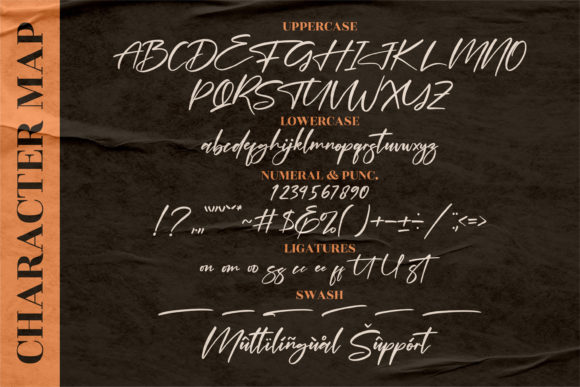 CHARACTER MAP
UPPERCASE
ABCDEFGHIJKLMNO
PQRSTUVWXYZ
LOWERCASE
abcdefghijklmnopqrstuvwxyz
NUMERAL & PUNC.
1234567890
!?.,"~#$&%()+-±÷/:;<=>
LIGATURES
on om oo ss cc ee ff tt ll st
SWASH
Mûttïlíñgùål Šûppórt